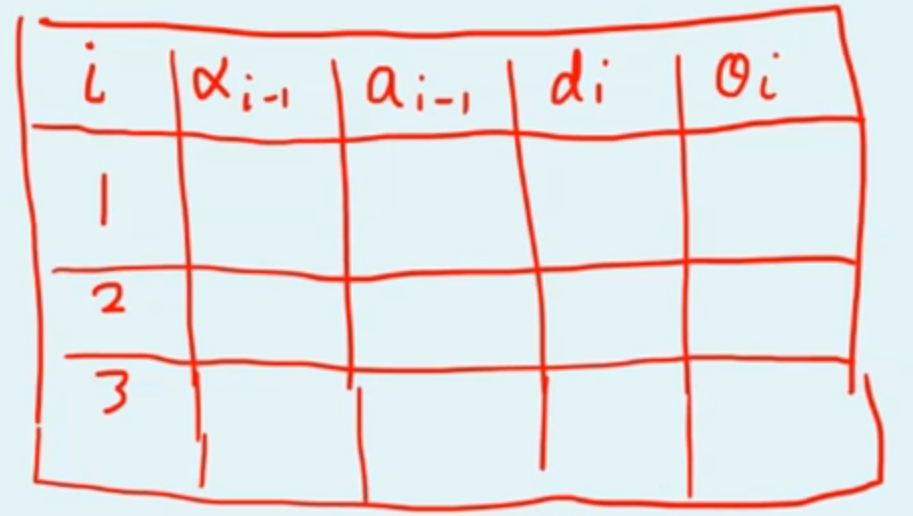 i α i-1 a i-1 d i θ i
1
2
3